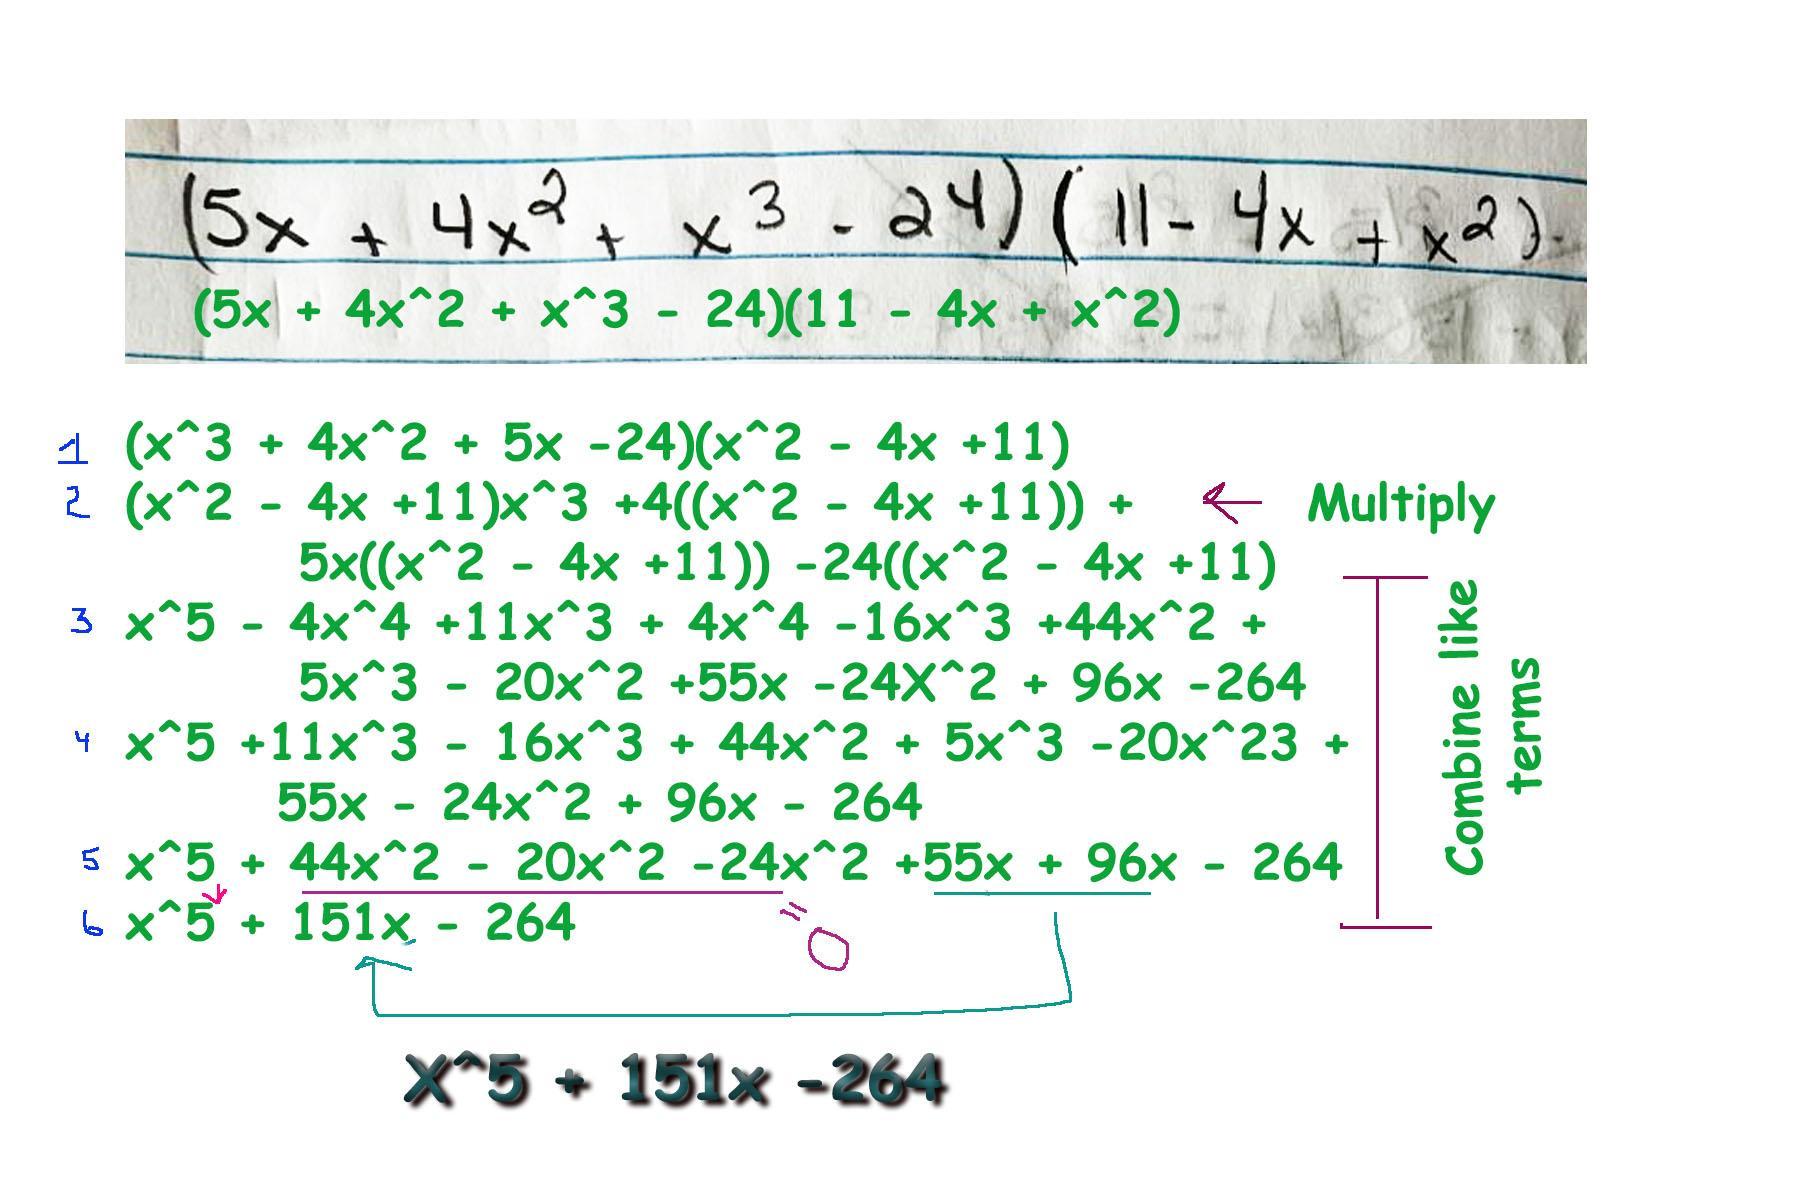 (5x + 4x² + x³ - 24)(11 - 4x + x²).
(5x + 4x^2 + x^3 - 24)(11 - 4x + x^2)
1 (x^3 + 4x^2 + 5x -24)(x^2 - 4x +11)
2 (x^2 - 4x +11)x^3 +4((x^2 - 4x +11)) + ← Multiply
5x((x^2 - 4x +11)) -24((x^2 - 4x +11)
3 x^5 - 4x^4 +11x^3 + 4x^4 -16x^3 +44x^2 +
5x^3 - 20x^2 +55x -24X^2 + 96x -264
4 x^5 +11x^3 - 16x^3 + 44x^2 + 5x^3 -20x^23 +
55x - 24x^2 + 96x - 264
5 x^5 + 44x^2 - 20x^2 -24x^2 +55x + 96x - 264
6 x^5 + 151x - 264
= 0
Combine like
terms
X^5 + 151x -264